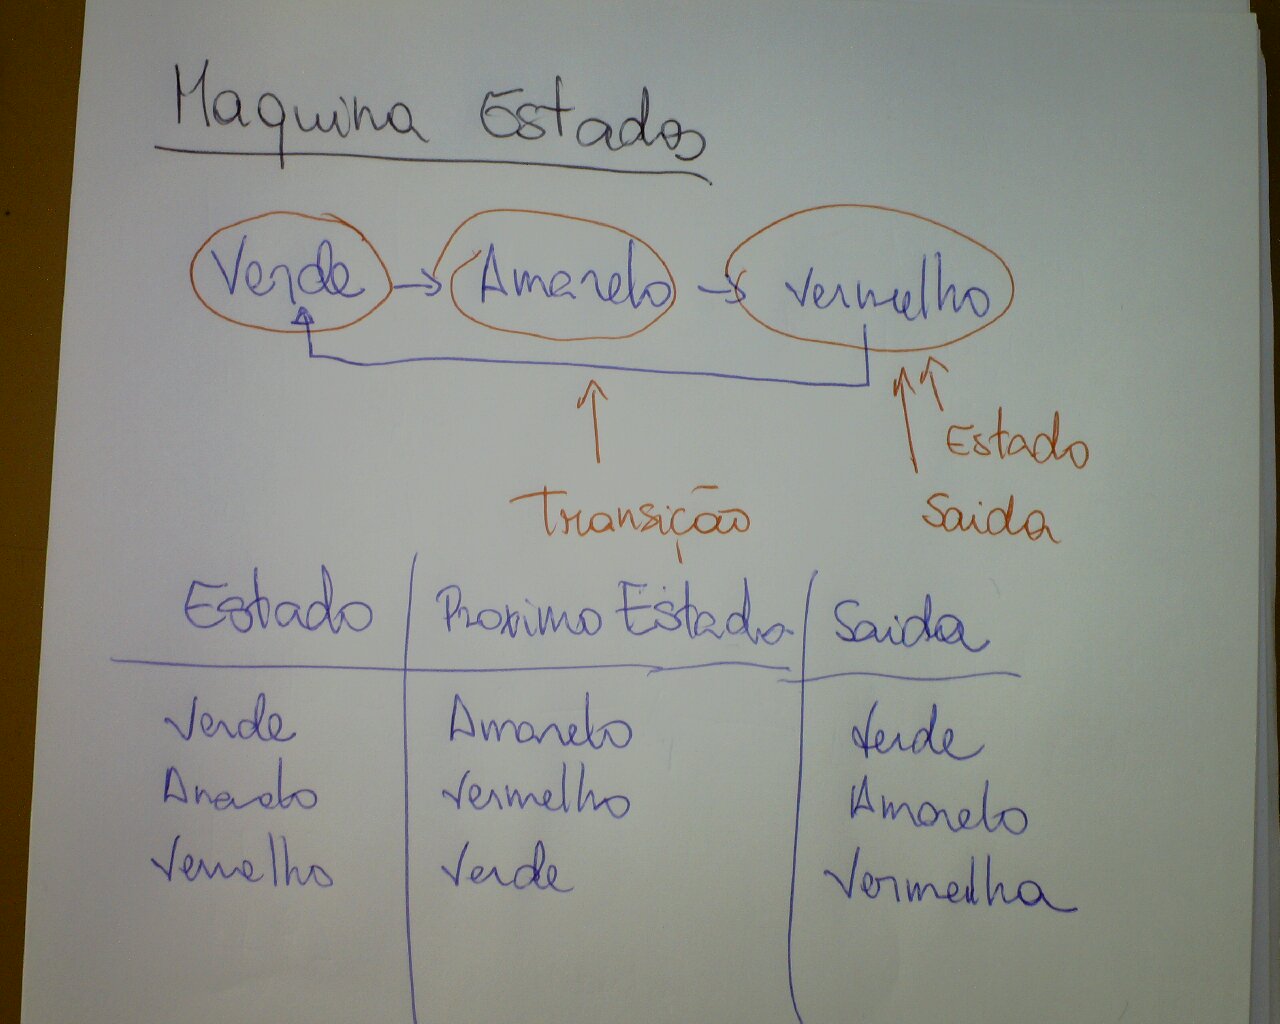 Maquina Estados
Verde → Amarelo → Vermelho
Estado
Saida
Transição
Estado Proximo Estado Saida
Verde Amarelo Verde
Amarelo Vermelho Amarelo
Vermelho Verde Vermelha